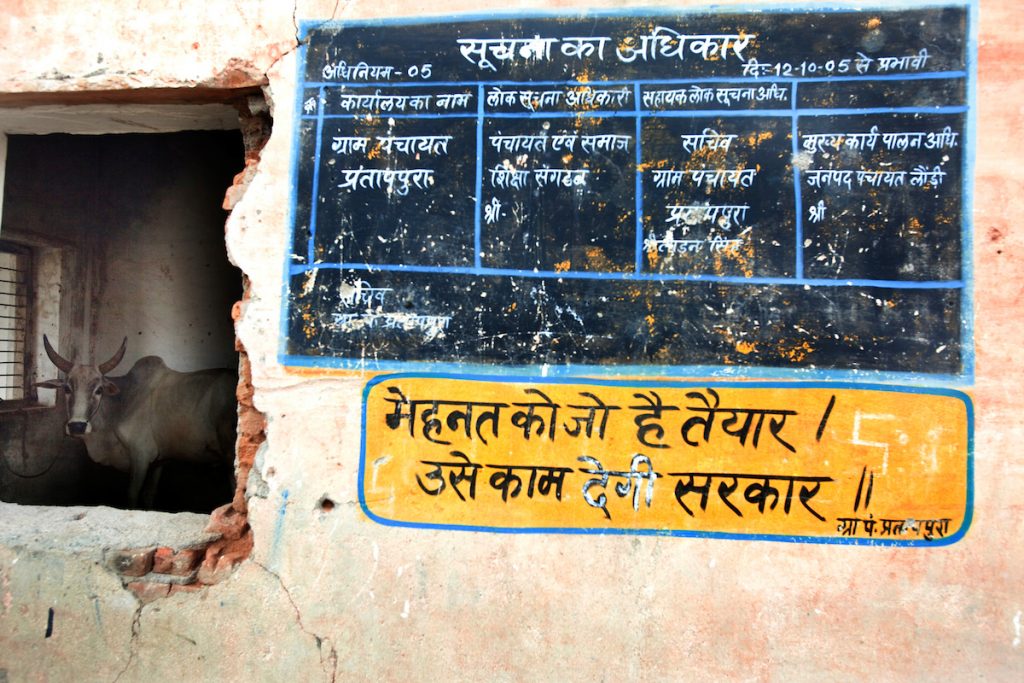 सूचना का अधिकार
अधिनियम - 05
दिः 12-10-05 से प्रभावी
कार्यालय का नाम
लोक सूचना अधिकारी
सहायक लोक सूचना अधि.
ग्राम पंचायत
प्रतापपुरा
पंचायत एवं समाज
शिक्षा संगठन
श्री.
सचिव
ग्राम पंचायत
प्रतापपुरा
मुख्य कार्य पालन अधि.
जनपद पंचायत लौंड़ी
श्री
सचिव
मेहनत को जो है तैयार ।
उसे काम देगी सरकार ॥
ग्रा पं. प्रतापपुरा